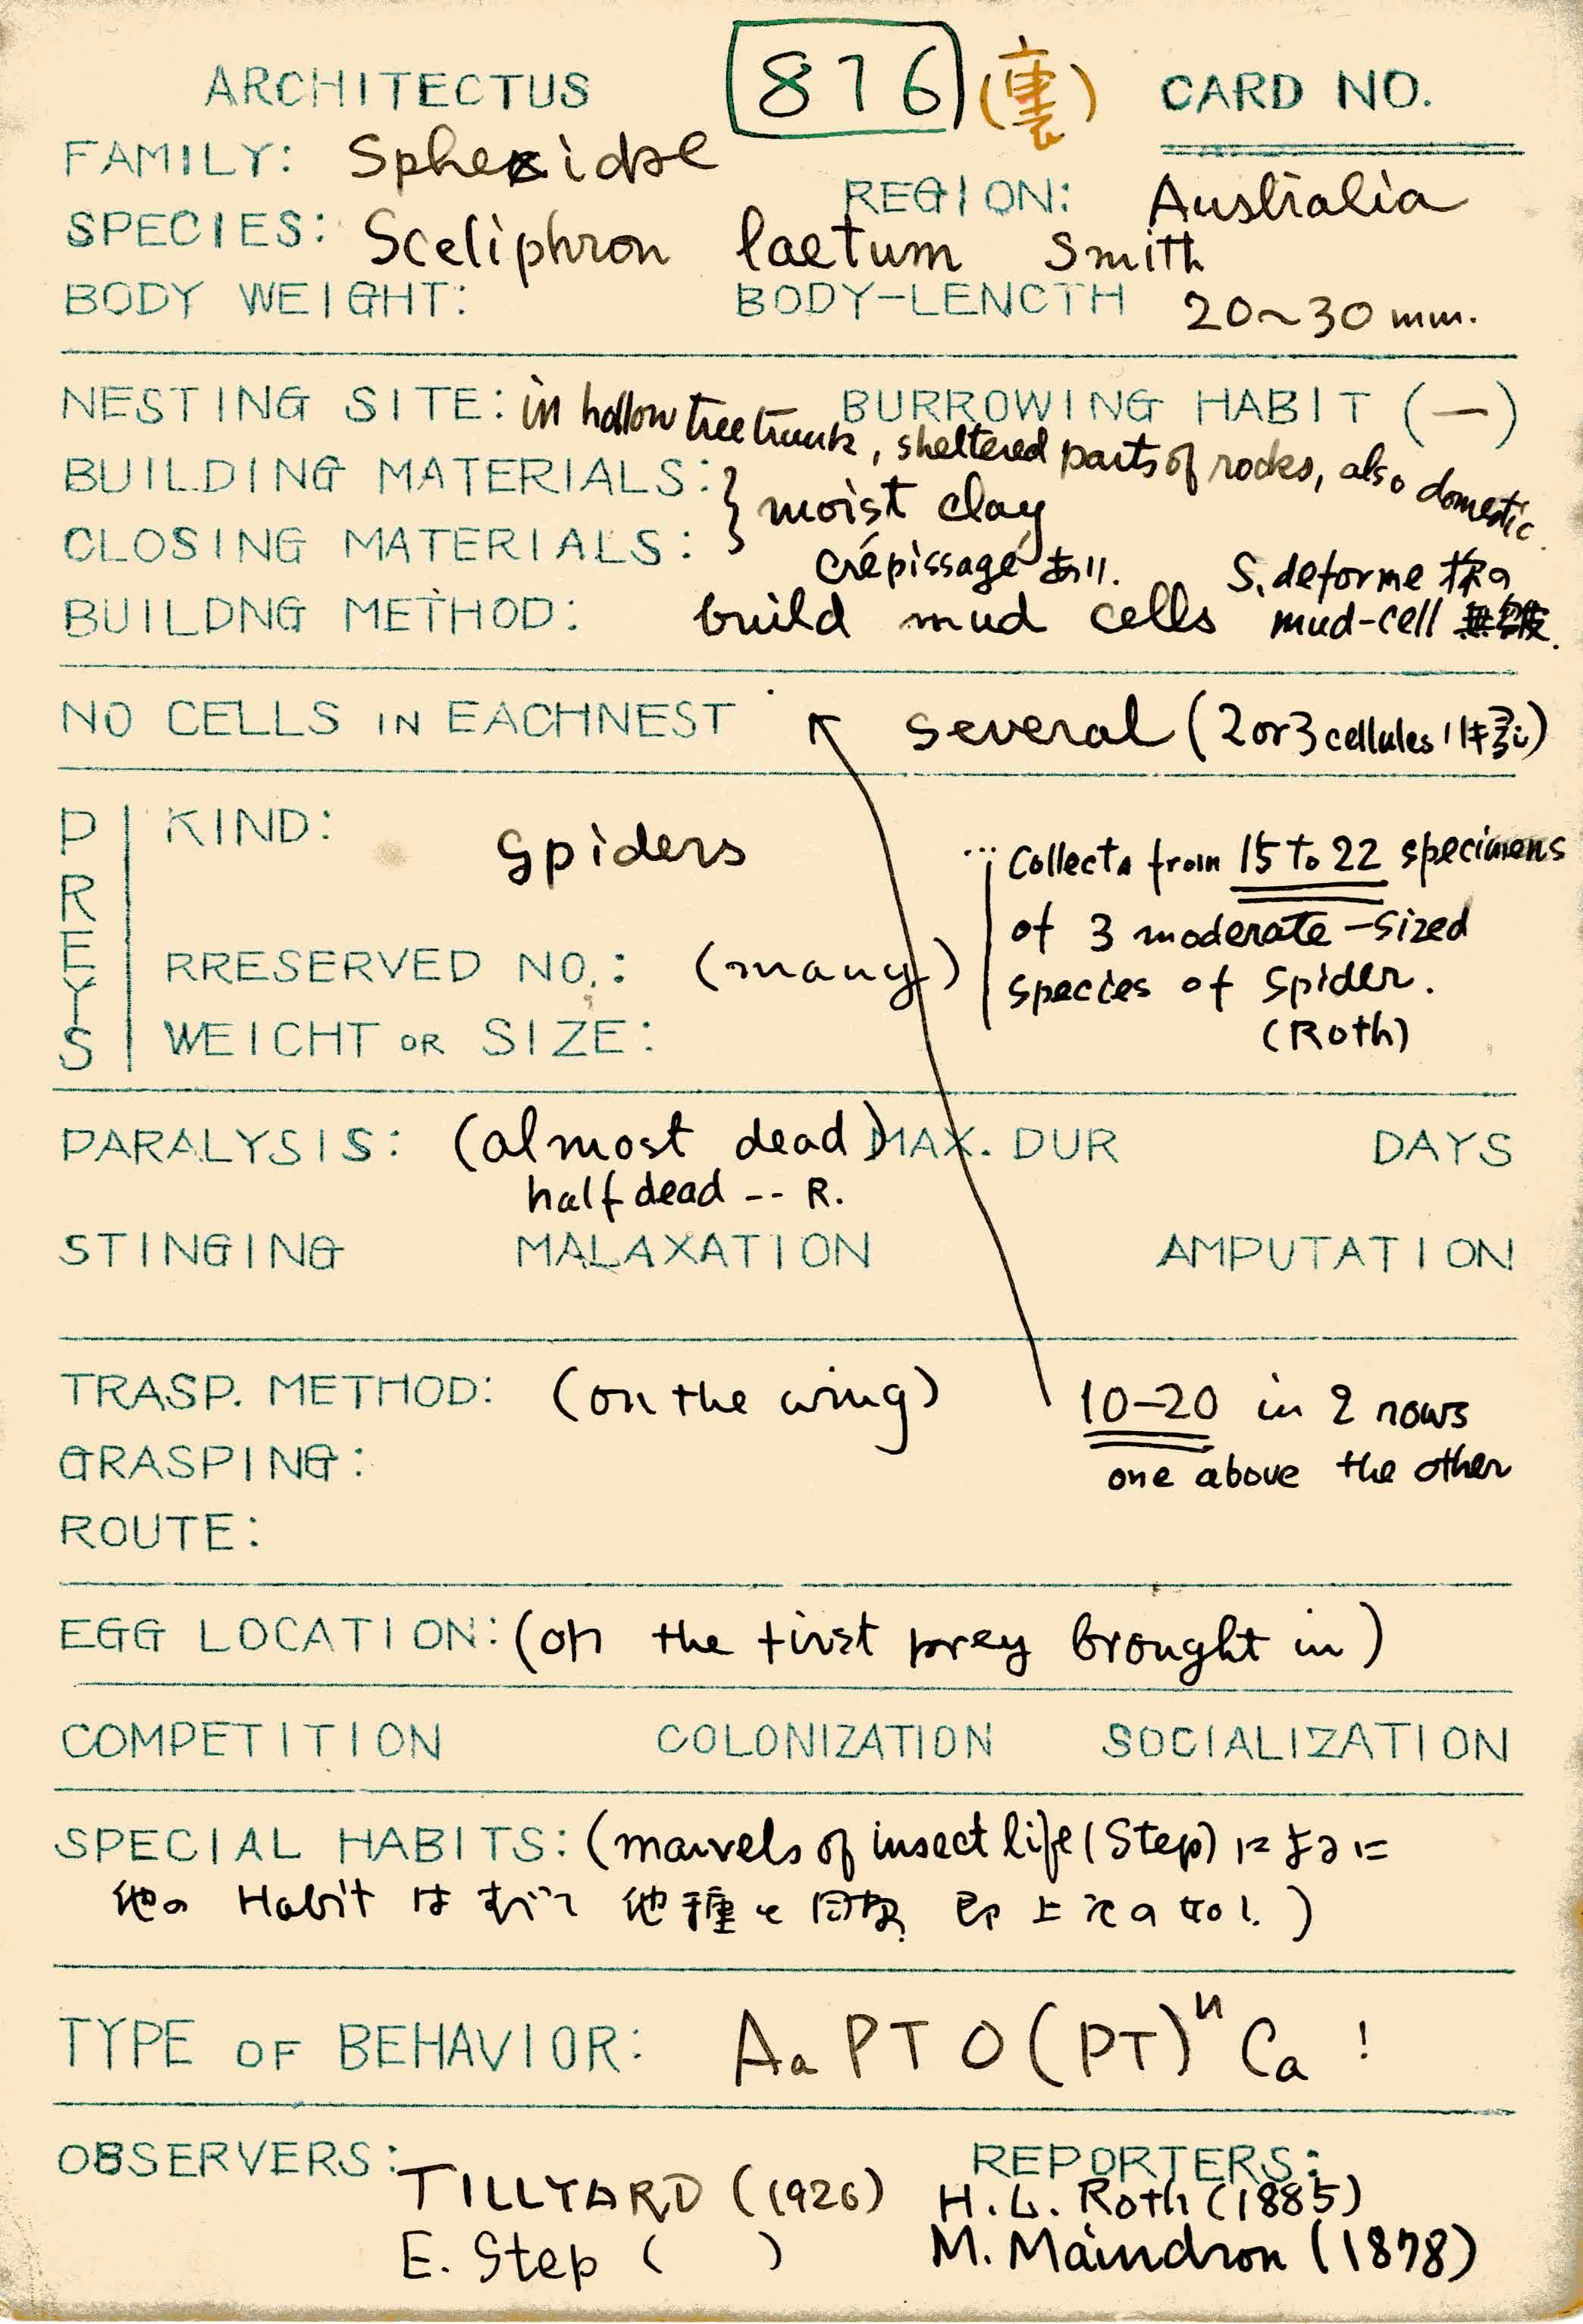 ARCHITECTUS 876 (裏) CARD NO.
FAMILY: Sphecidae
REGION: Australia
SPECIES: Sceliphron laetum Smith
BODY WEIGHT: BODY-LENCTH 20~30 mm.
NESTING SITE: in hollow tree trunk, sheltered parts of rocks, also domestic.
BURROWING HABIT (—)
BUILDING MATERIALS: } moist clay
CLOSING MATERIALS:
crépissage あり. S. deforme 状の
BUILDNG METHOD: build mud cells mud-cell
NO CELLS IN EACHNEST several (2 or 3 cellules)
PREYS
KIND: Spiders
... Collects from 15 to 22 specimens
of 3 moderate-sized
species of spider.
(Roth)
RRESERVED NO.: (many)
WEICHT OR SIZE:
PARALYSIS: (almost dead) MAX. DUR DAYS
half dead -- R.
STINGING MALAXATION AMPUTATION
TRASP. METHOD: (on the wing)
10-20 in 2 rows
one above the other
GRASPING:
ROUTE:
EGG LOCATION: (on the first prey brought in)
COMPETITION COLONIZATION SOCIALIZATION
SPECIAL HABITS: (marvels of insect life (Step) に
他の Habit は すべて 他種と同様 即上記の如し.)
TYPE OF BEHAVIOR: Aa PTO(PT)ⁿ Ca !
OBSERVERS: TILLYARD (1926)
E. Step ( )
REPORTERS:
H. L. Roth (1885)
M. Maindron (1878)